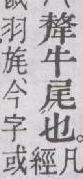 犛牛尾也。凡
經
羽旄今字或